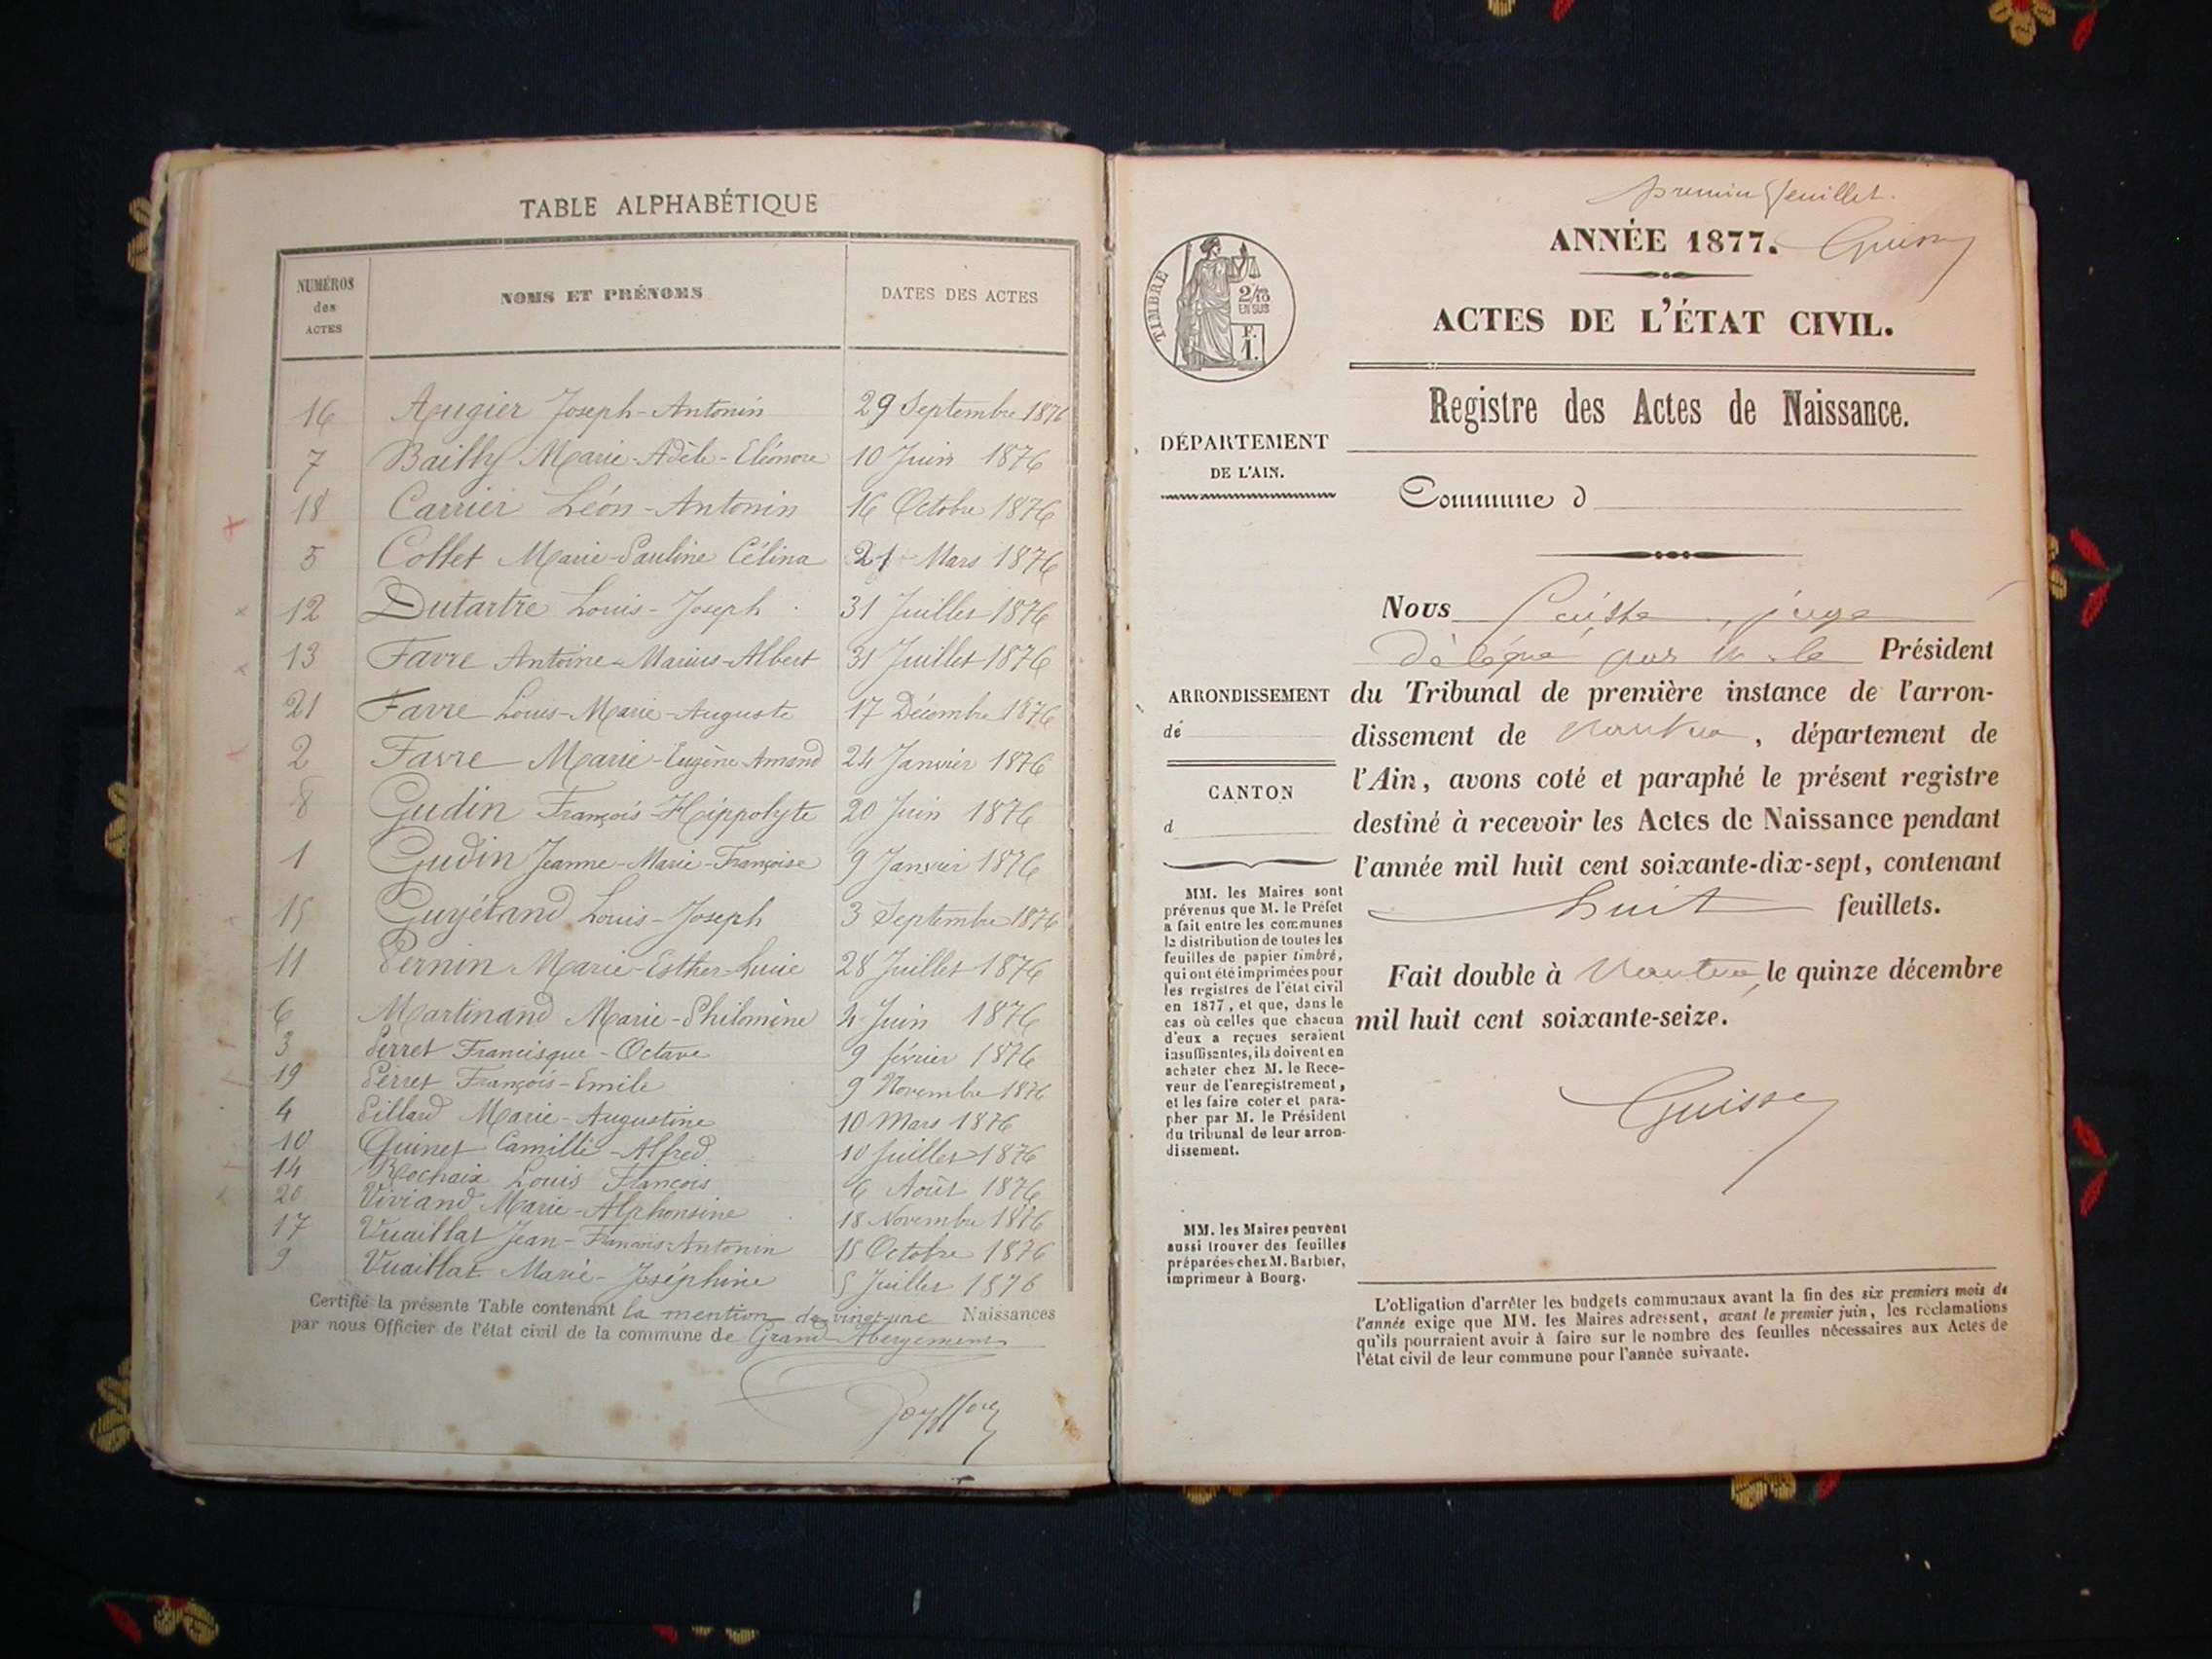 TABLE ALPHABÉTIQUE
NUMÉROS des ACTES
NOMS ET PRÉNOMS
DATES DES ACTES
16 Augier Joseph-Antonin 29 Septembre 1876
7 Bailly Marie-Adèle-Eléonore 10 Juin 1876
18 Carrier Léon-Antonin 16 Octobre 1876
5 Collet Marie-Pauline Célina 21 Mars 1876
12 Dutartre Louis-Joseph 31 Juillet 1876
13 Favre Antoine-Marius-Albert 31 Juillet 1876
21 Favre Louis-Marie-Auguste 17 Décembre 1876
2 Favre Marie-Eugène Amand 24 Janvier 1876
8 Gudin François-Hippolyte 20 Juin 1876
1 Gudin Jeanne-Marie-Françoise 9 Janvier 1876
15 Guyétand Louis-Joseph 3 Septembre 1876
11 Marie-Esther-Lucie 28 Juillet 1876
6 Martinand Marie-Philomène 4 Juin 1876
3 Perret Francisque-Octave 9 février 1876
19 Perret François-Emile 9 Novembre 1876
4 Pillard Marie-Augustine 10 Mars 1876
10 Quinet Camille-Alfred 10 Juillet 1876
14 Rochaix Louis François 6 Août 1876
20 Viviand Marie-Alphonsine 18 Novembre 1876
17 Vuaillat Jean-François-Antonin 15 Octobre 1876
9 Vuaillat Marie-Joséphine 5 Juillet 1876
Certifié la présente Table contenant la mention de vingt-une Naissances
par nous Officier de l'état civil de la commune de Grand-Abergement
premier feuillet.
ANNÉE 1877.
TIMBRE
2/10
EN SUS
F.
1.
ACTES DE L'ÉTAT CIVIL.
Registre des Actes de Naissance.
DÉPARTEMENT
DE L'AIN.
Commune d
Nous juge
délégué par M. le Président
ARRONDISSEMENT
de
du Tribunal de première instance de l'arron-
dissement de Nantua, département de
l'Ain, avons coté et paraphé le présent registre
destiné à recevoir les Actes de Naissance pendant
l'année mil huit cent soixante-dix-sept, contenant
huit feuillets.
Fait double à Nantua, le quinze décembre
mil huit cent soixante-seize.
CANTON
d
MM. les Maires sont
prévenus que M. le Préfet
a fait entre les communes
la distribution de toutes les
feuilles de papier timbré,
qui ont été imprimées pour
les registres de l'état civil
en 1877, et que, dans le
cas où celles que chacun
d'eux a reçues seraient
insuffisantes, ils doivent en
acheter chez M. le Rece-
veur de l'enregistrement,
et les faire coter et para-
pher par M. le Président
du tribunal de leur arron-
dissement.
MM. les Maires peuvent
aussi trouver des feuilles
préparées chez M. Barbier,
imprimeur à Bourg.
L'obligation d'arrêter les budgets communaux avant la fin des six premiers mois de
l'année exige que MM. les Maires adressent, avant le premier juin, les réclamations
qu'ils pourraient avoir à faire sur le nombre des feuilles nécessaires aux Actes de
l'état civil de leur commune pour l'année suivante.